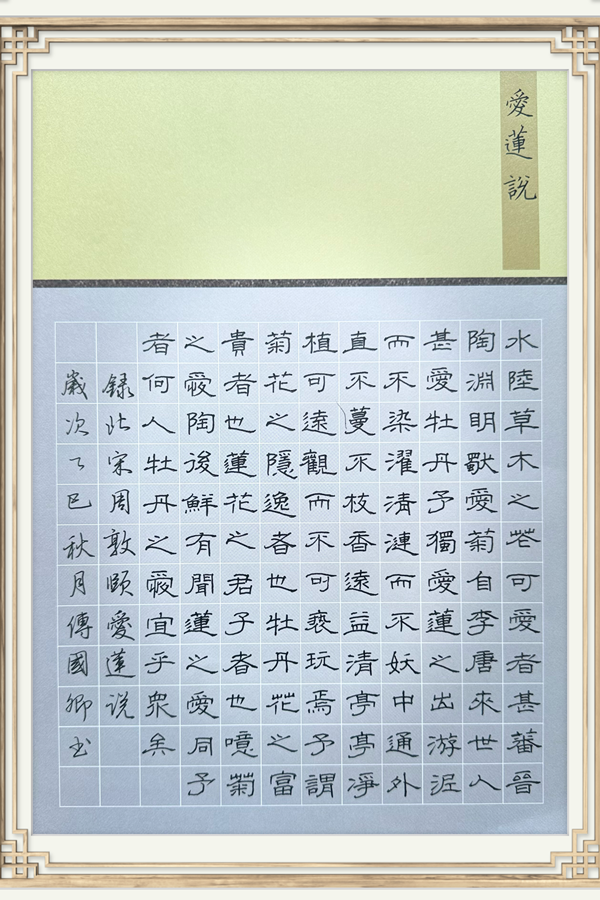 愛蓮說
水陸草木之花可愛者甚蕃晉
陶淵明獨愛菊自李唐來世人
甚愛牡丹予獨愛蓮之出淤泥
而不染濯清漣而不妖中通外
直不蔓不枝香遠益清亭亭淨
植可遠觀而不可褻玩焉予謂
菊花之隱逸者也牡丹花之富
貴者也蓮花之君子者也噫菊
之愛陶後鮮有聞蓮之愛同予
者何人牡丹之愛宜乎眾矣
錄北宋周敦頤愛蓮说
歲次乙巳秋月傅國卿书